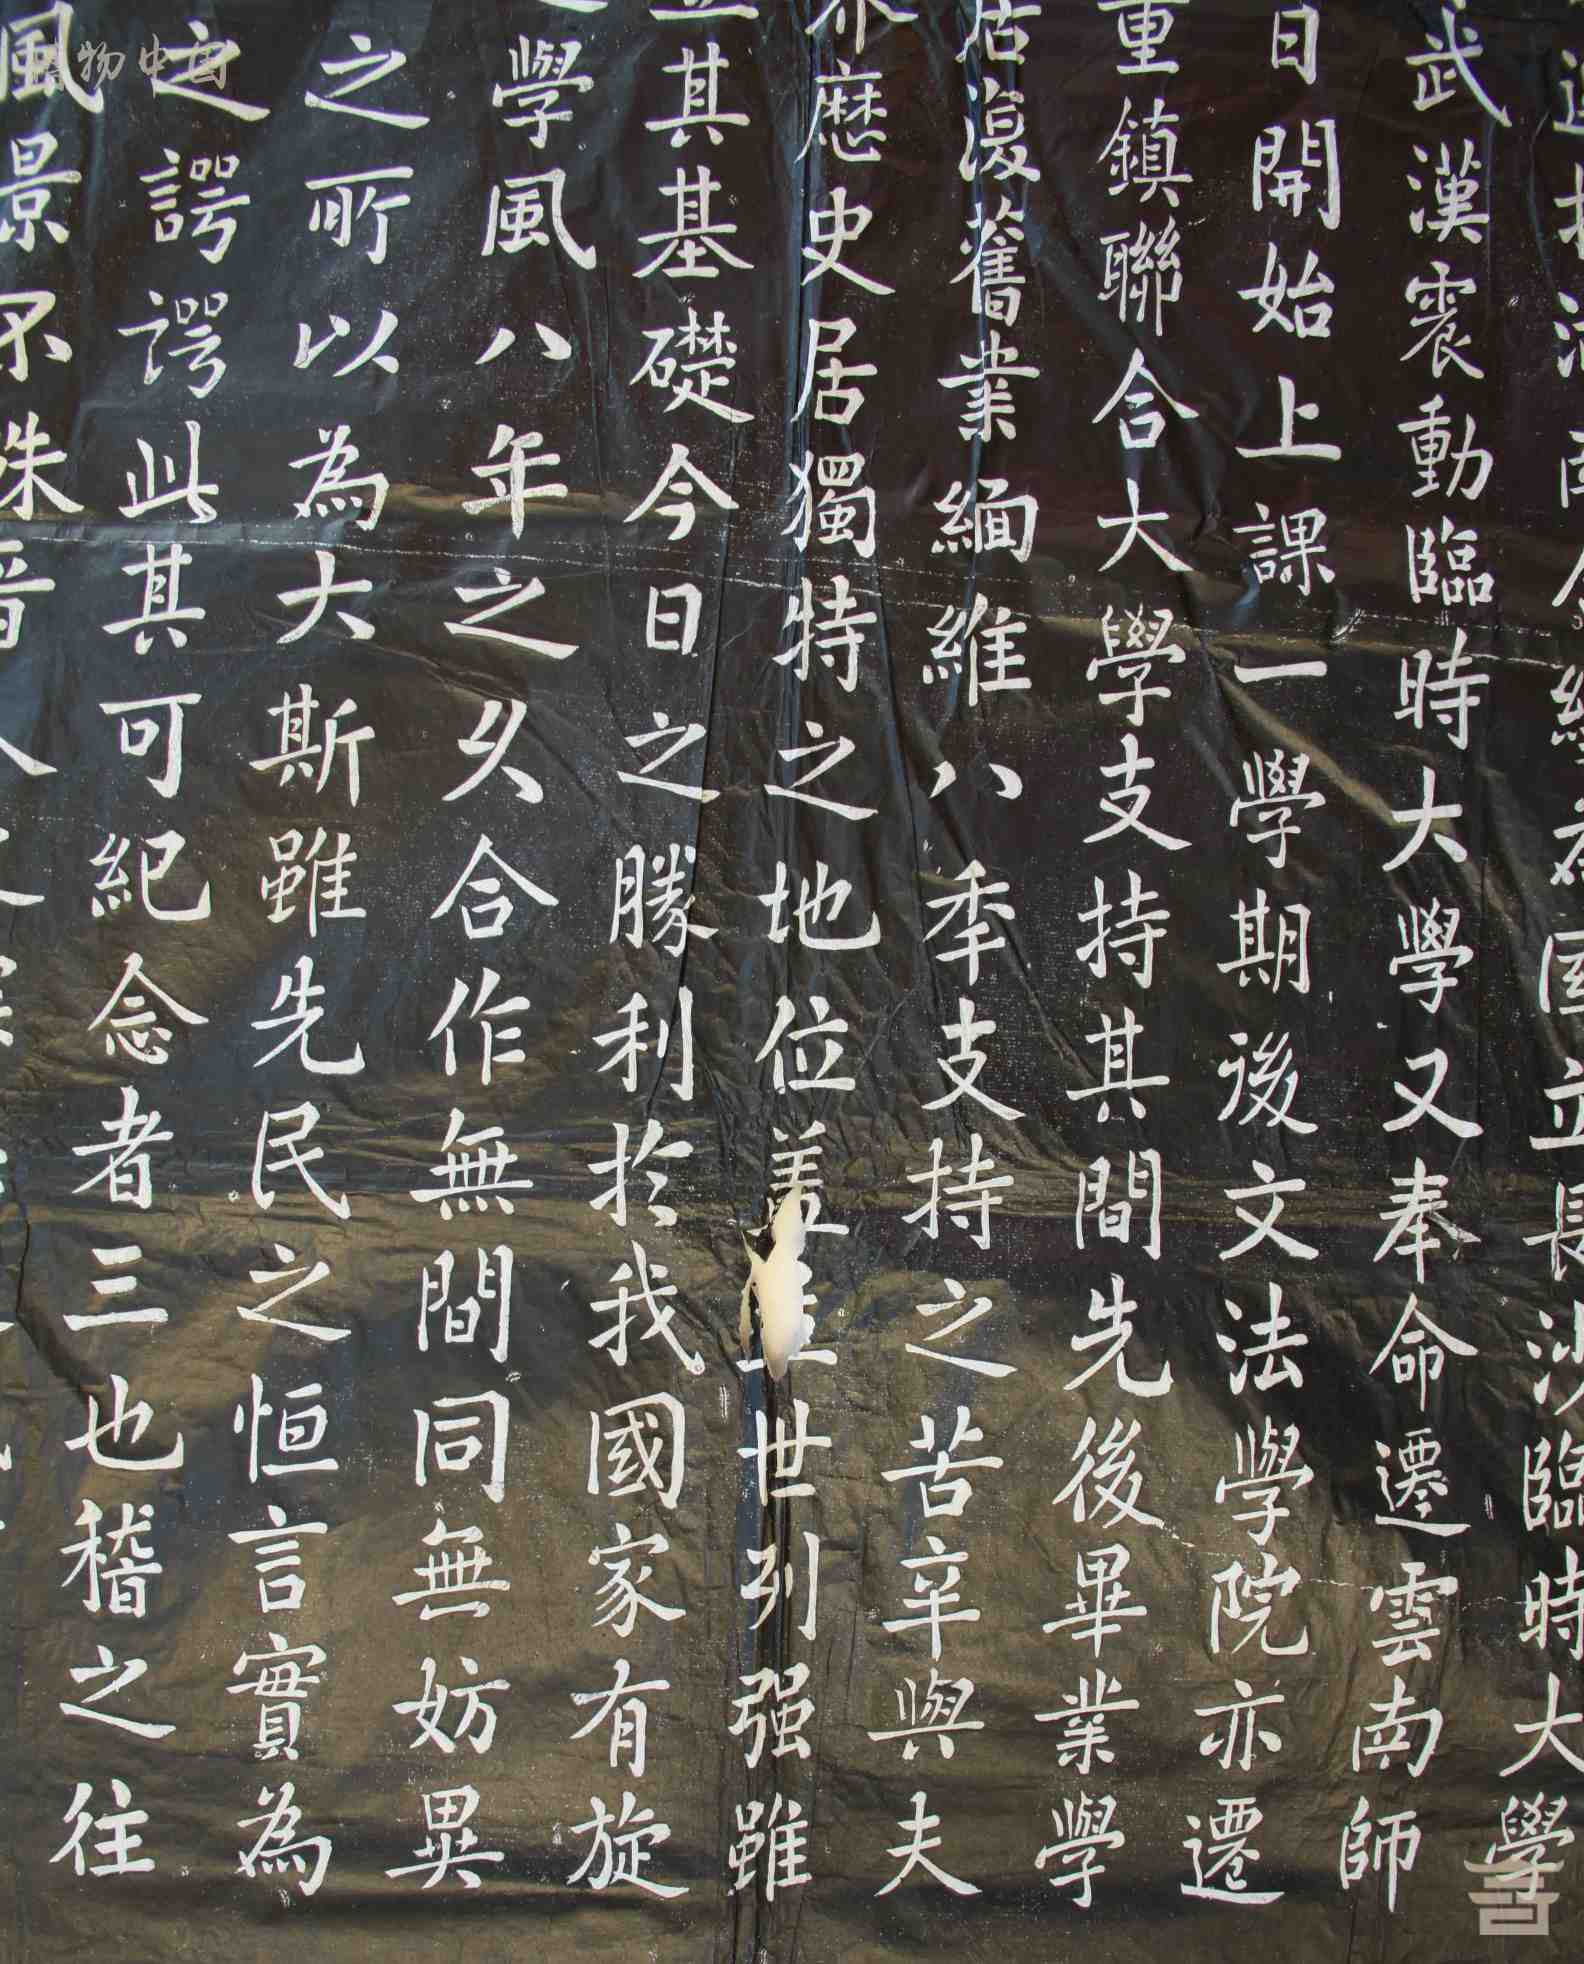 國立長沙臨時大學
武漢震動臨時大學又奉命遷雲南師
日開始上課一學期後文法學院亦遷
重鎮聯合大學支持其間先後畢業學
居復舊業緬維八秊支持之苦辛與夫
歴史居獨特之地位世列强雖
其基礎今日之勝利於我國家有旋
學風八年之久合作無間同無妨異
之所以為大斯雖先民之恒言實為
之諤諤此其可紀念者三也稽之往
風景不殊晉人
博物中国